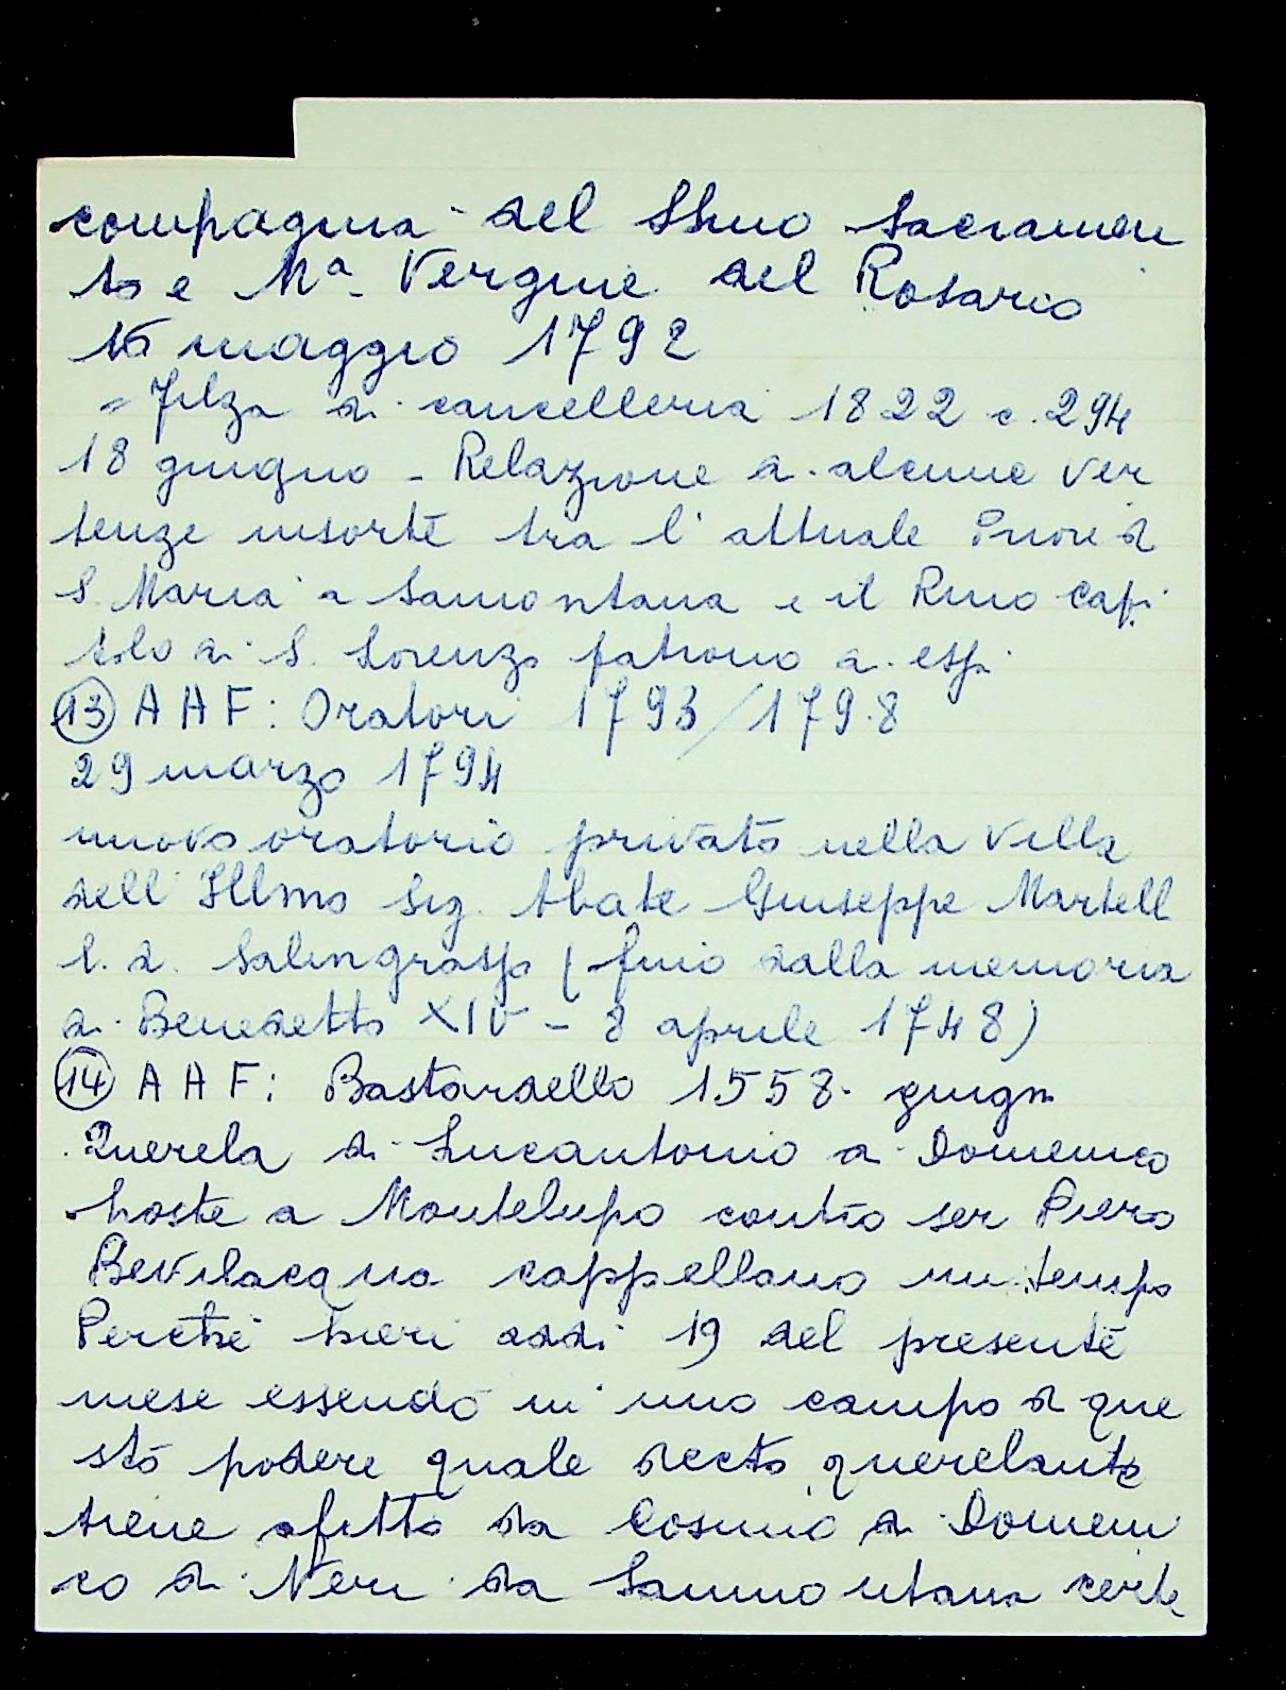 compagnia del SSmo Sacramen
to e Mª Vergine del Rosario
16 maggio 1792
= Filza di cancelleria 1822 c. 294
18 giugno - Relazione di alcune ver
tenze insorte tra l'attuale Priore di
S. Maria a Samontana e il Rmo Capi
tolo di S. Lorenzo patrono di essa
(13) A A F: Oratori 1793/1798
29 marzo 1794
nuovo oratorio privato nella villa
dell'Illmo Sig. Abate Giuseppe Martell
l. d. Salingrosso ( fuio dalla memoria
di Benedetto XIV - 8 aprile 1748)
(14) A A F: Bastardello 1558. giugn
Querela di Lucantonio di Domenico
hoste a Montelupo contro ser Piero
Bevilacqua cappellano un tempo
Perché hieri addi 19 del presente
mese essendo in uno campo di que
sto podere quale decto querelante
tiene afitto da Cosimo di Domeni
co di Neri da Sammontana certe